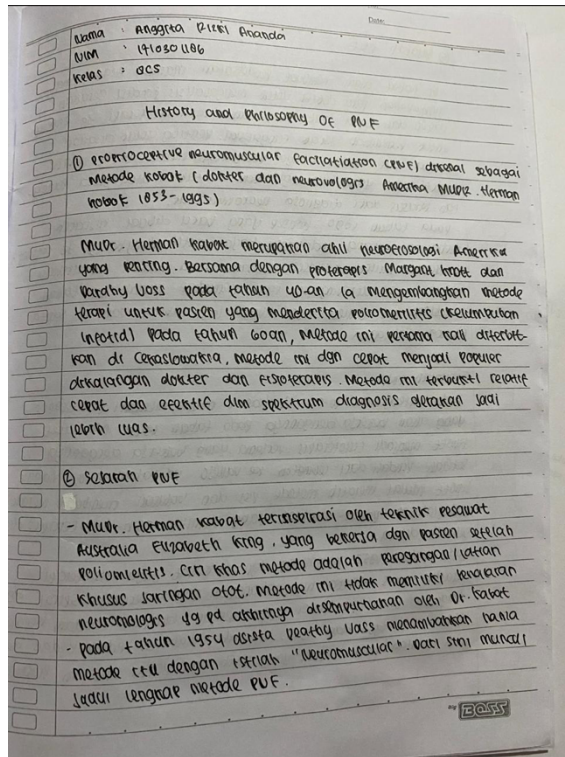 Date:
Nama : Anggita Rizki Ananda
NIM : 171030486
Kelas : OCS
History and Philosophy Of PNF
① Proprioceptive neuromuscular Facilatiation (PNF) dikenal sebagai
metode Kobok (dokter dan neurologis Amerika MUDr. Herman
Kobok 1053-1995)
MUDr. Herman Kabat merupakan ahli neurofosologi Amerika
yang penting. Bersama dengan proterapis Margart knott dan
Darothy Uoss pada tahun 40-an ia mengembangkan metode
terapi untuk pasien yang menderita poliomerlitis (kelumpuhan
infotid) pada tahun 60an, Metode ini pertama kali diterbit-
kan di Cekaslowakia, metode ini dgn cepat menjadi populer
dikalangan dokter dan fisioterapis. Metode ini terbukti relatif
cepat dan efektif dlm spektrum diagnosis gerakan jadi
lebih luas.
② Sejarah PNF
- MUDr. Herman Kabat terinspirasi oleh teknik pesawat
Australia Elizabeth King, yang bekerja dgn pasien setelah
poliomielitis. Ciri khas metode adalah peregangan/latian
khusus jaringan otot. Metode ini tidak memiliki
neuromologis yg pd akhirnya disempurnakan oleh Dr. Kabat
- pada tahun 1954 asista Deathy Vass menambahkan nama
metode itu dengan istilah "Neuromuscular". Dari sini muncul
Judul lengkap metode PNF.
by BOSS